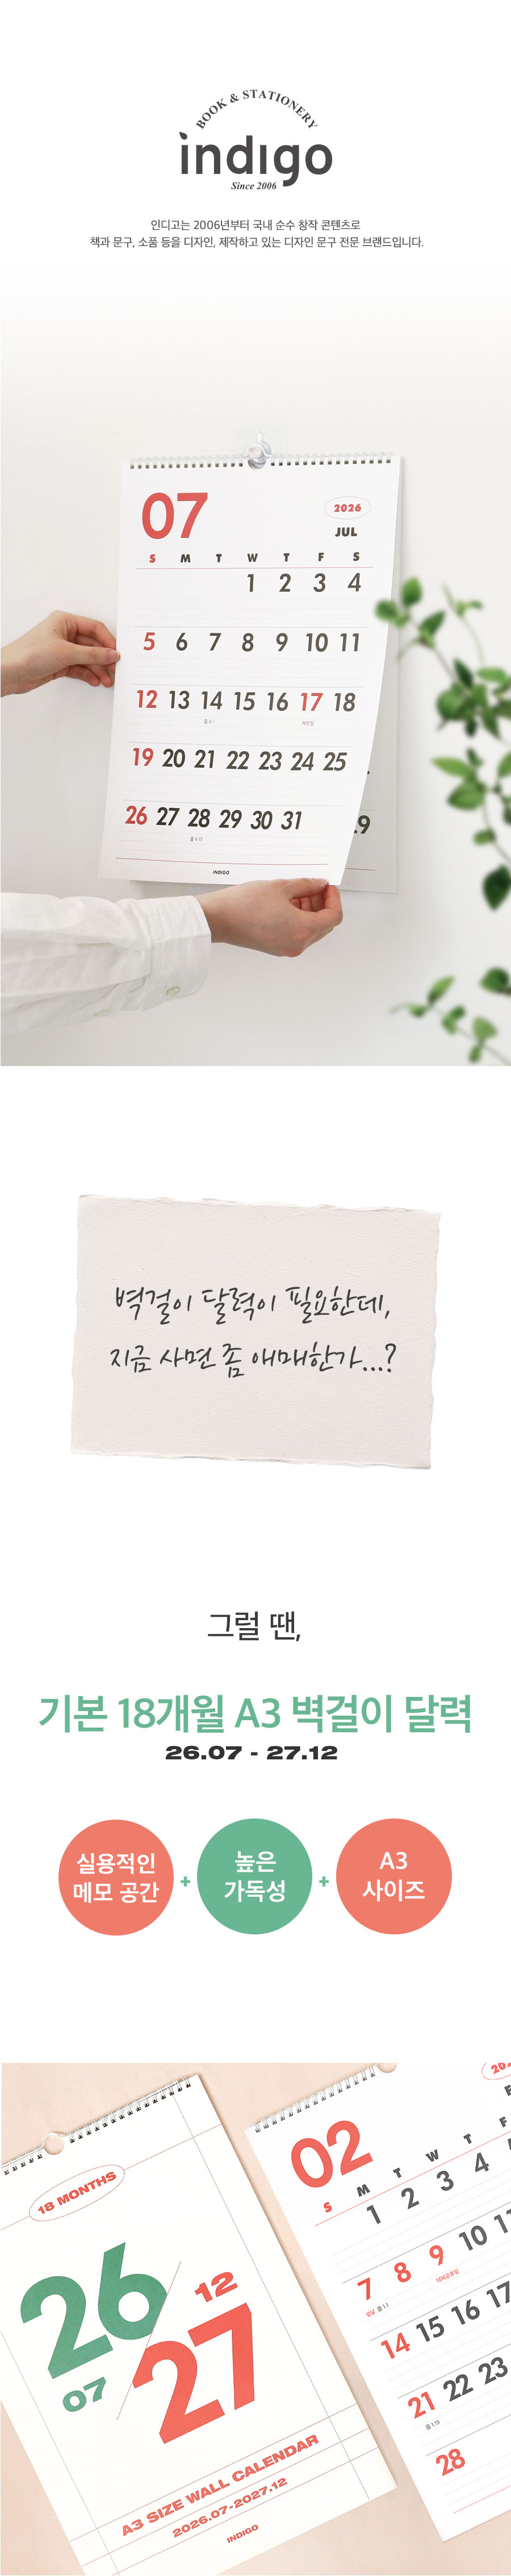 BOOK & STATIONERY
indigo
Since 2006
인디고는 2006년부터 국내 순수 창작 콘텐츠로
책과 문구, 소품 등을 디자인, 제작하고 있는 디자인 문구 전문 브랜드입니다.
07
2026
JUL
S M T W T F S
1 2 3 4
5 6 7 8 9 10 11
12 13 14 15 16 17 18
제헌절
19 20 21 22 23 24 25
26 27 28 29 30 31
INDIGO
벽걸이 달력이 필요한데,
지금 사면 좀 애매한가...?
그럴 땐,
기본 18개월 A3 벽걸이 달력
26.07 - 27.12
실용적인
메모 공간
+
높은
가독성
+
A3
사이즈
18 MONTHS
26
07
12
27
A3 SIZE WALL CALENDAR
2026.07-2027.12
INDIGO
02
S M T W T F
1 2 3 4
7 8 9 10 11
설날 음 1.1
대체공휴일
14 15 16 17
21 22 23
음 1.15
28